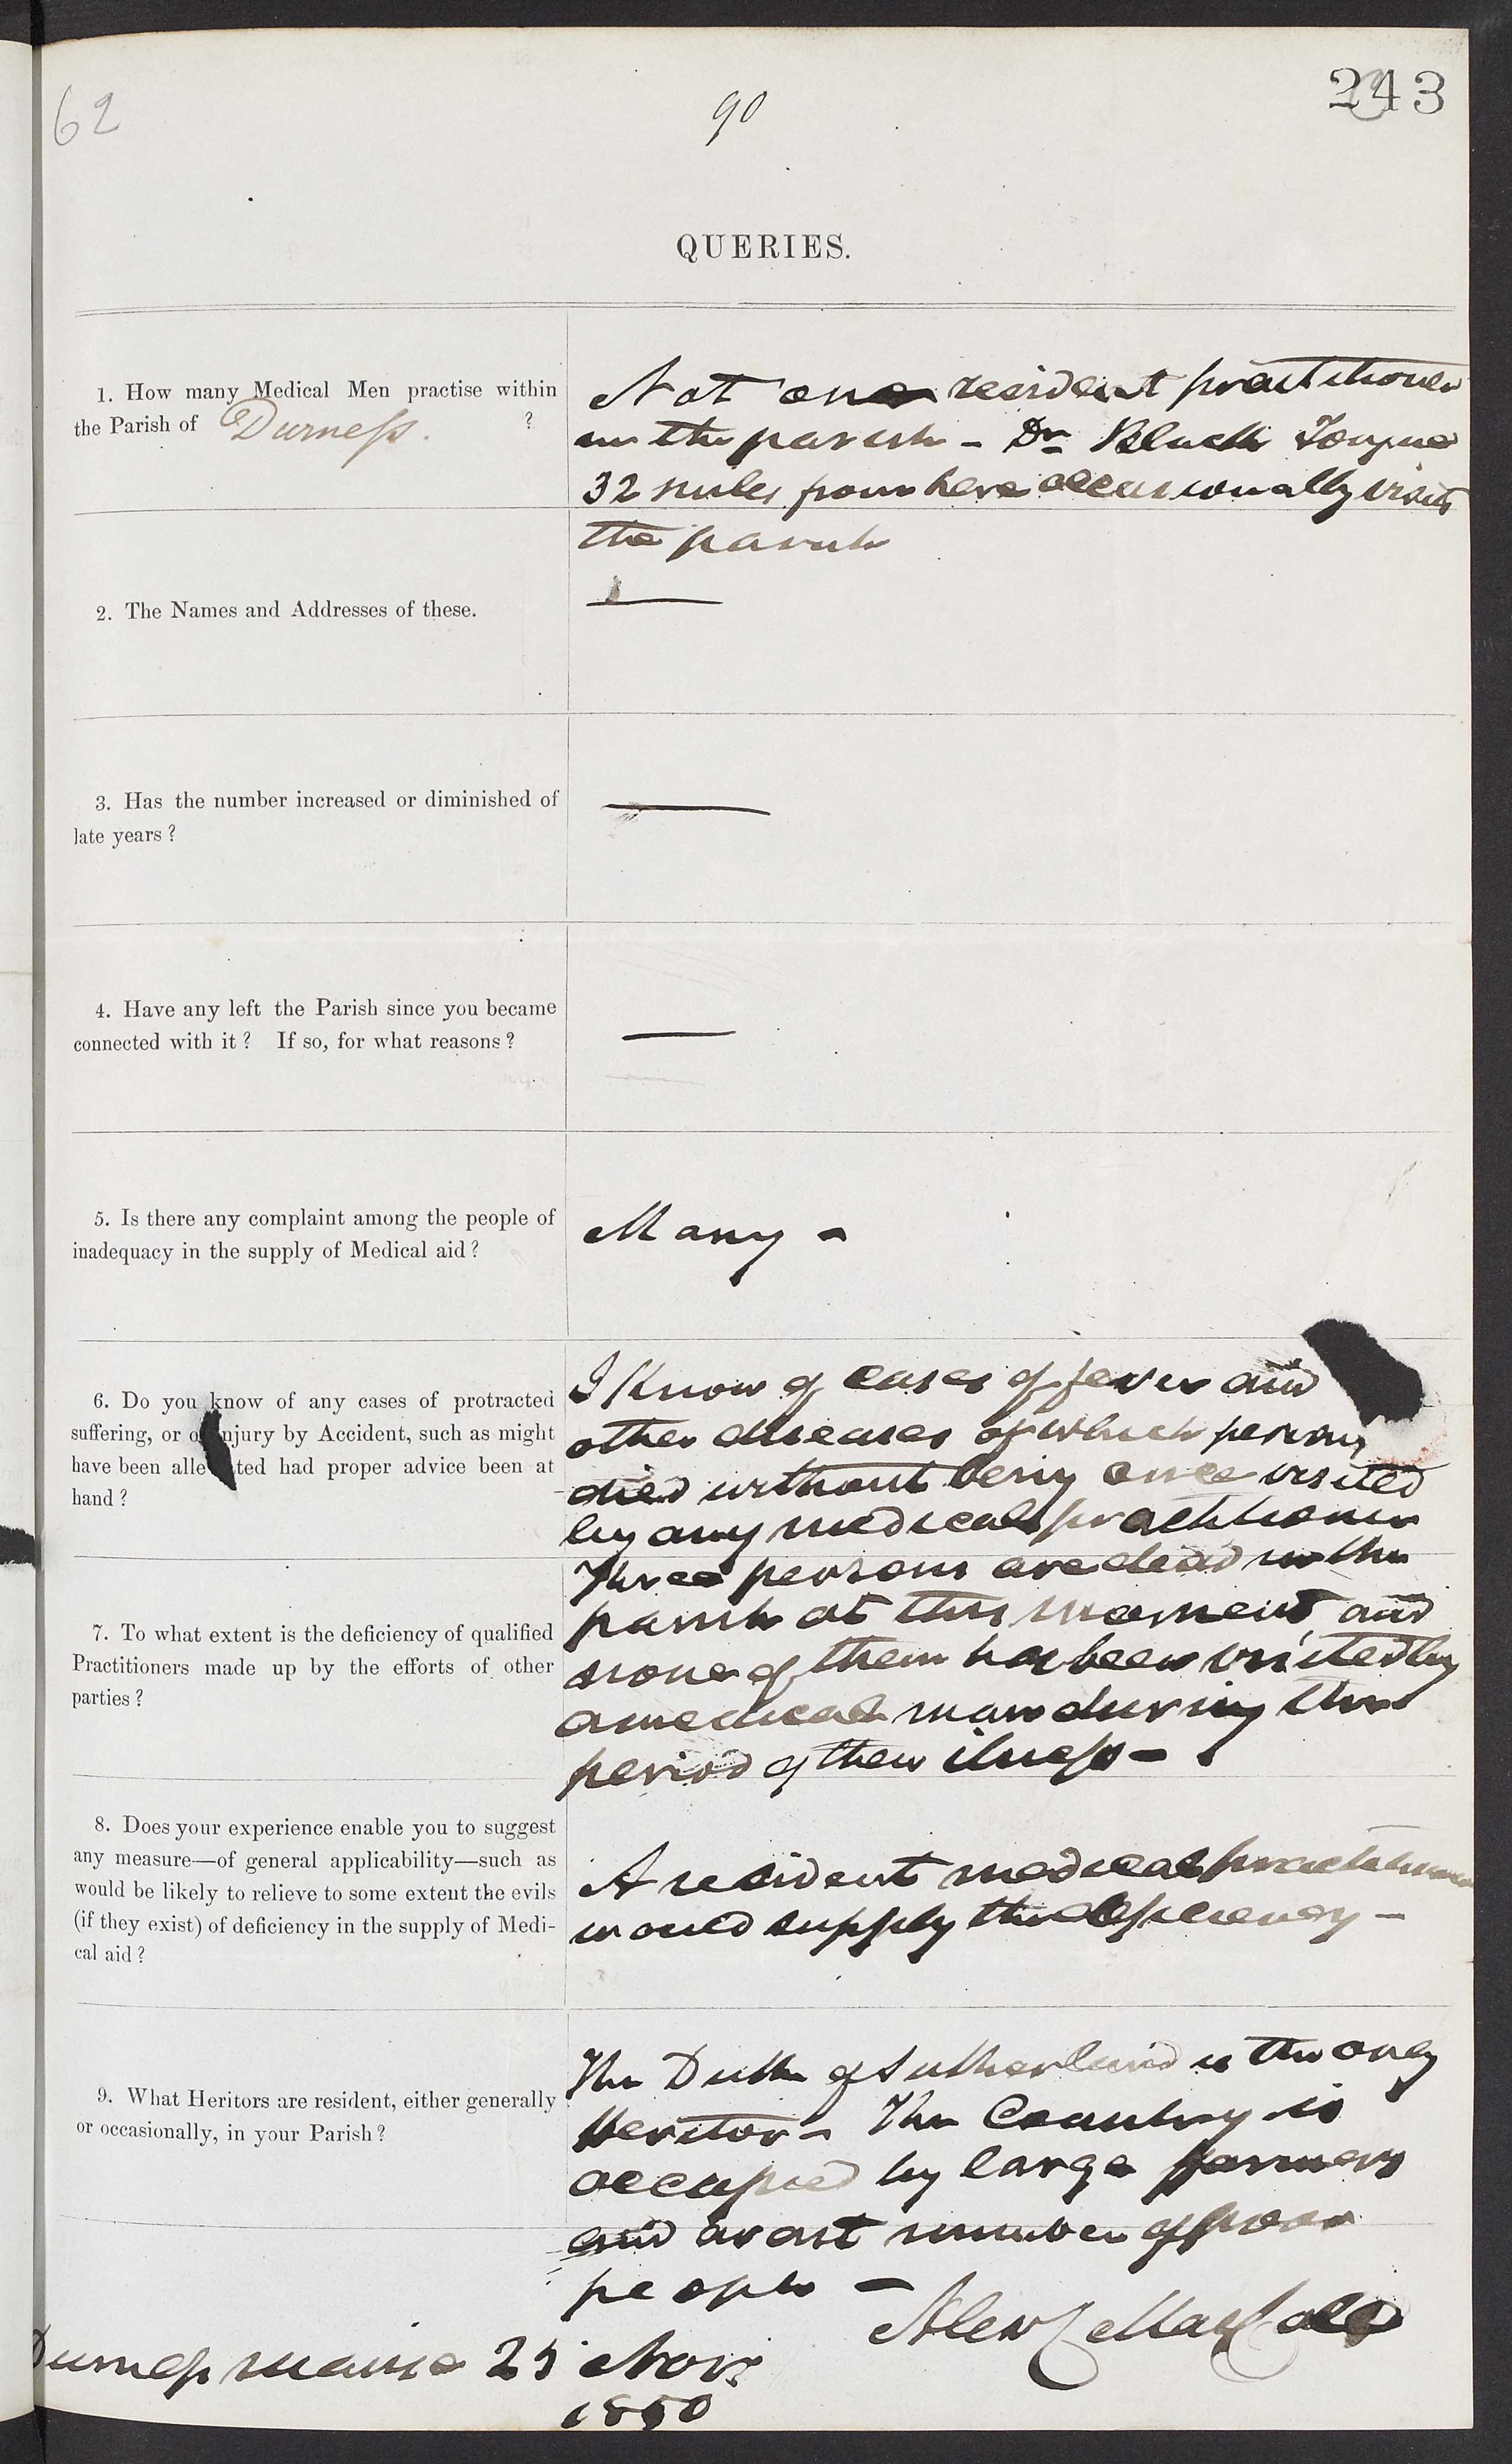 62
90
243
QUERIES.
1. How many Medical Men practise within
the Parish of Durness. ?
Not one resident practitioner
in the parish - Dr Black Tongue
32 miles from here occasionally visits
the parish
2. The Names and Addresses of these.
—
3. Has the number increased or diminished of
late years ?
—
4. Have any left the Parish since you became
connected with it ? If so, for what reasons ?
—
5. Is there any complaint among the people of
inadequacy in the supply of Medical aid ?
Many -
6. Do you know of any cases of protracted
suffering, or of injury by Accident, such as might
have been alle ted had proper advice been at
hand ?
I know of cases of fever and
other diseases of which persons
died without being once visited
by any medical practitioner
Three persons are dead in the
parish at this moment and
none of them has been visited by
a medical man during the
period of their illness -
7. To what extent is the deficiency of qualified
Practitioners made up by the efforts of other
parties ?
8. Does your experience enable you to suggest
any measure—of general applicability—such as
would be likely to relieve to some extent the evils
(if they exist) of deficiency in the supply of Medi-
cal aid ?
A resident medical practitioner
would supply the deficiency -
9. What Heritors are resident, either generally
or occasionally, in your Parish ?
The Duke of Sutherland is the only
Heritor - The Country is
occupied by large farmers
and a vast number of poor
people -
Durness manse 25 Novr
1850